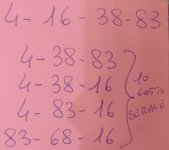 4-16-38-83
4-38-83
4-38-16
4-83-16
83-68-16
10
LOTTO
SERALE